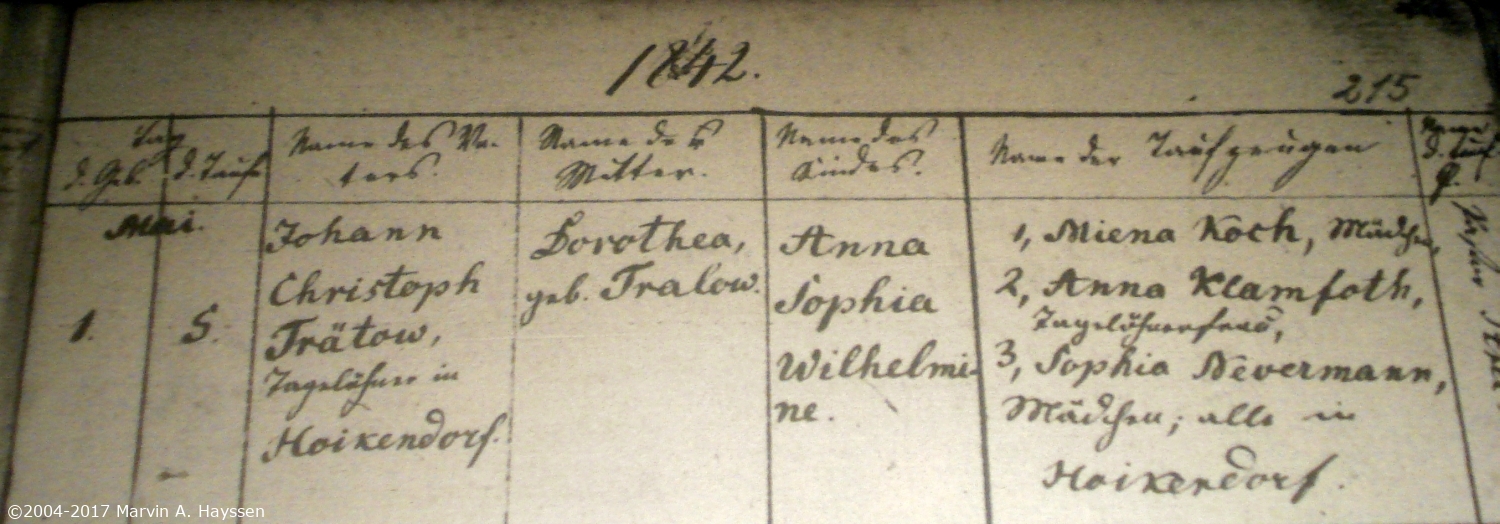 1842.
215
Tag
d. Geb. d. Taufe
Name des Va-
ters.
Name der
Mutter.
Name des
Kindes.
Name der Taufzeugen
Name
d. Tauf
Mai.
1.
5.
Johann
Christoph
Trätow,
Tagelöhner in
Hoikendorf.
Dorothea,
geb. Tralow.
Anna
Sophia
Wilhelmi-
ne.
1, Miena Koch, Mädchen,
2, Anna Klamfoth,
Tagelöhnerfrau,
3, Sophia Nevermann,
Mädchen; alle in
Hoikendorf.
©2004-2017 Marvin A. Hayssen